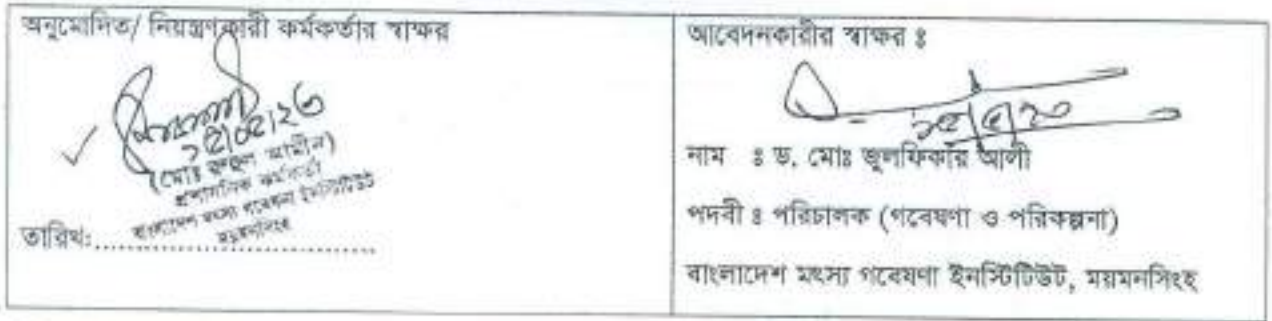 অনুমোদিত/ নিয়ন্ত্রণকারী কর্মকর্তার স্বাক্ষর
(মোঃ রুহুল আমীন)
প্রশাসনিক কর্মকর্তা
বাংলাদেশ মৎস্য গবেষণা ইনস্টিটিউট
ময়মনসিংহ
তারিখঃ
আবেদনকারীর স্বাক্ষর ঃ
নাম ঃ ড. মোঃ জুলফিকার আলী
পদবী ঃ পরিচালক (গবেষণা ও পরিকল্পনা)
বাংলাদেশ মৎস্য গবেষণা ইনস্টিটিউট, ময়মনসিংহ